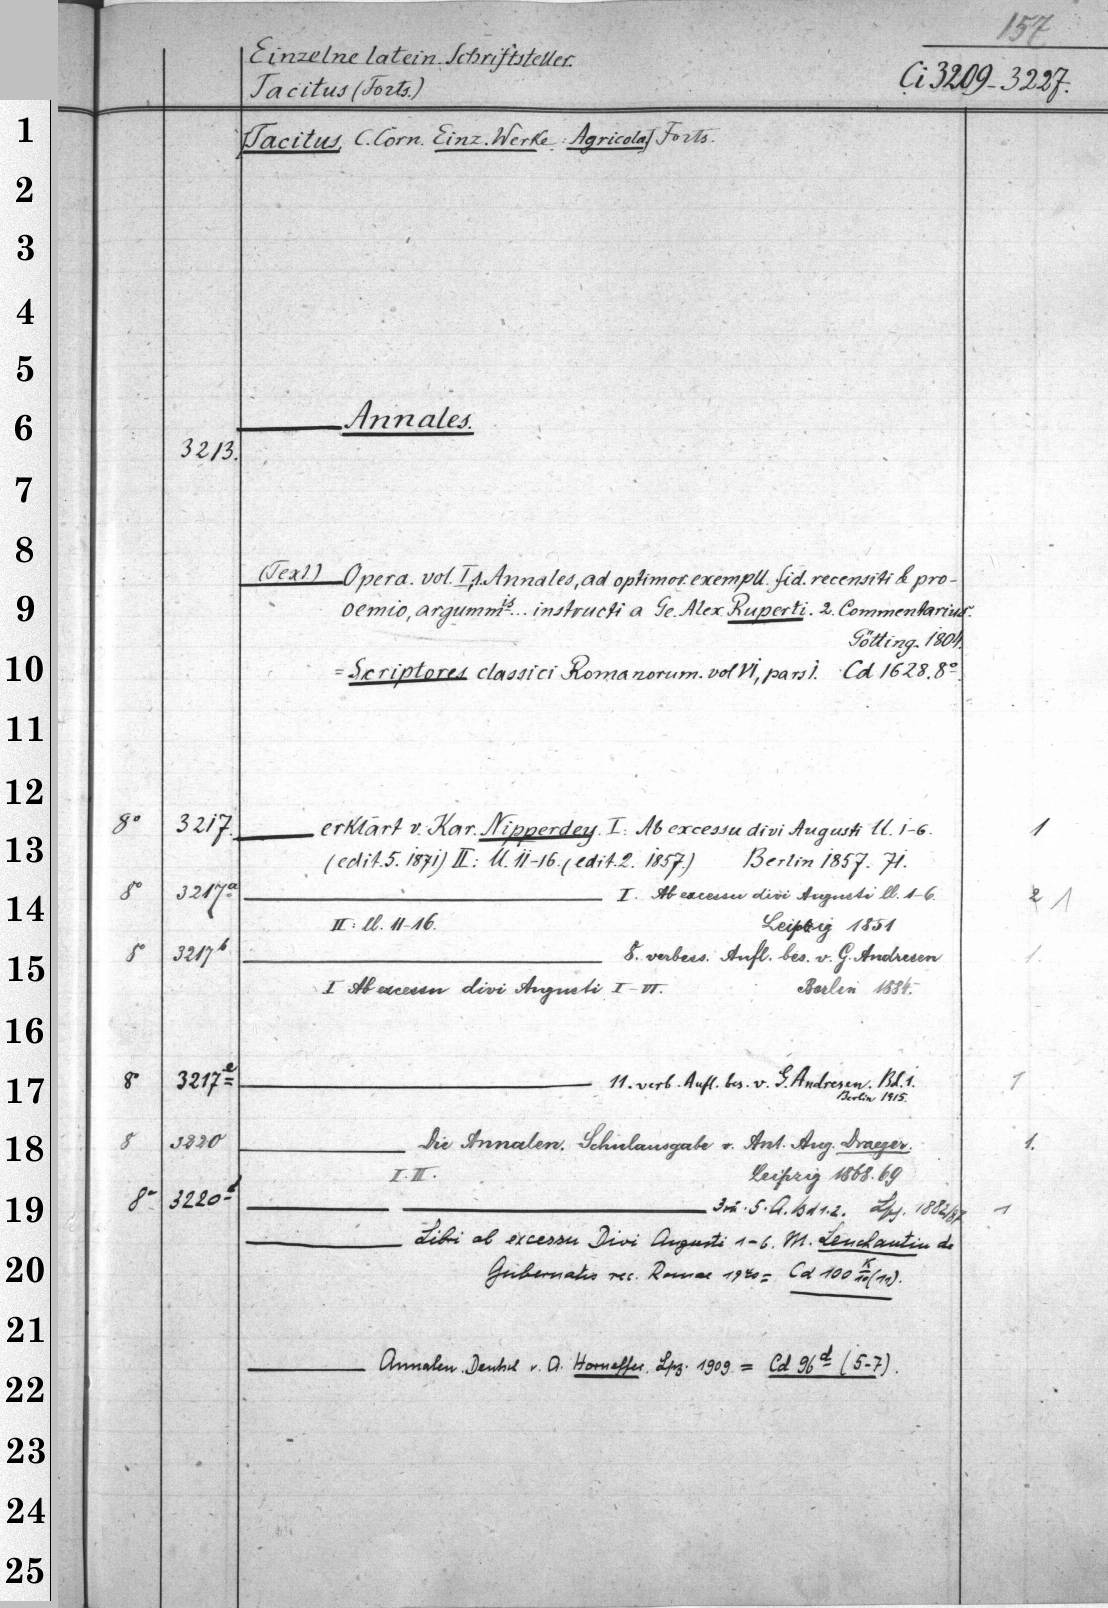 157
Einzelne latein. Schriftsteller.
Ci 3209-3227.
Tacitus (Forts.)
1
[Tacitus, C. Corn. Einz. Werke: Agricola] Forts.
2
3
4
5
6
Annales.
3213.
7
8
(Text) Opera. vol. I,1. Annales, ad optimor. exempll. fid. recensiti & pro-
9
oemio, argumm.is... instructi a Ge. Alex Ruperti. 2. Commentarius.
Götting. 1804.
10
= Scriptores classici Romanorum. vol VI, pars I. Cd 1628. 8°.
11
12
8° 3217. erklärt v. Kar. Nipperdey. I: Ab excessu divi Augusti ll. 1-6. 1
13
(edit. 5. 1871) II: ll. 11-16. (edit. 2. 1857.) Berlin 1857. 71.
8° 3217a I. Ab excessu divi Augusti ll. 1-6. 2 1
14
II: ll. 11-16. Leipzig 1851
8° 3217b 8. verbess. Aufl. bes. v. G. Andresen 1.
15
I Ab excessu divi Augusti I-VI. Berlin 1884.
16
8° 3217e 11. verb. Aufl. bes. v. G. Andresen. Bd. 1. 1
17
Berlin 1915.
8 3220 Die Annalen. Schulausgabe v. Ant. Aug. Draeger. 1.
18
I. II. Leipzig 1868. 69
8° 3220d 5. A. Bd 1. 2. Lpz. 1882/87 1
19
Libri ab excessu Divi Augusti 1-6. M. Lenchantin de
20
Gubernatis rec. Romae = Cd 100
21
Annalen. Deutsch v. A. Horneffer. Lpz. 1909 = Cd 96d (5-7).
22
23
24
25